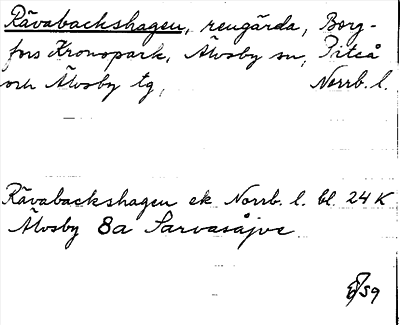 Rävabackshagen, rengärda, Borg-
fors Kronopark, Älvsby sn, Piteå
och Älvsby tg, Norrb. l.
Rävabackshagen ek Norrb. l. bl. 24 K
Älvsby 8a Sarvasåjve
59